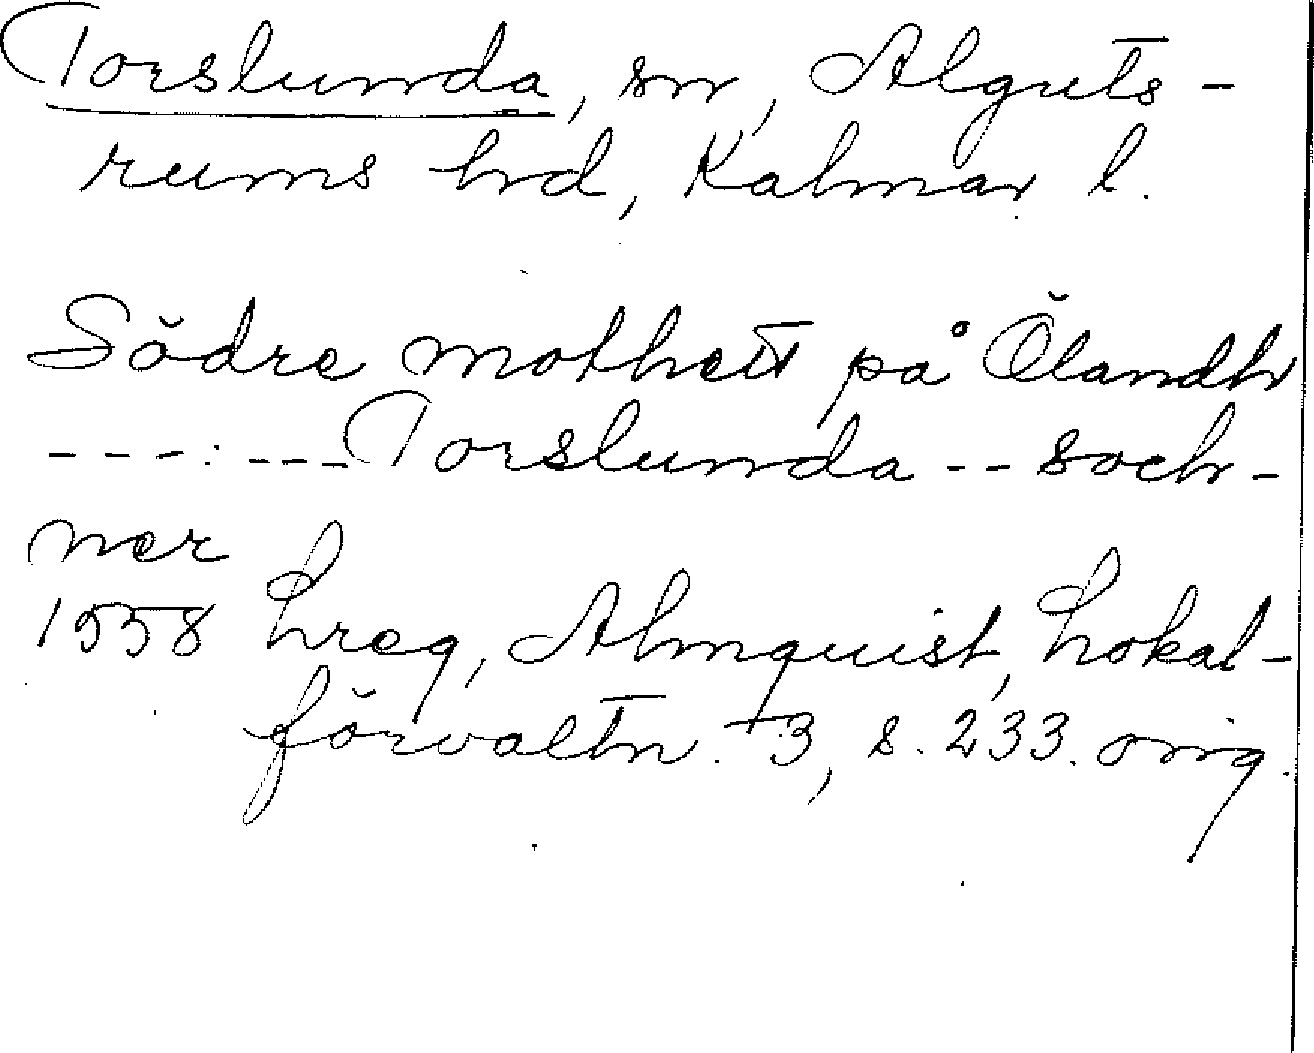 Torslunda, sn, Alguts-
rums hrd, Kalmar l.
Södre mothett på Ölandh
---.---Torslunda -- soch-
ner
1558 Lreg, Almquist, Lokal-
förvaltn. 3, s. 233. orig.